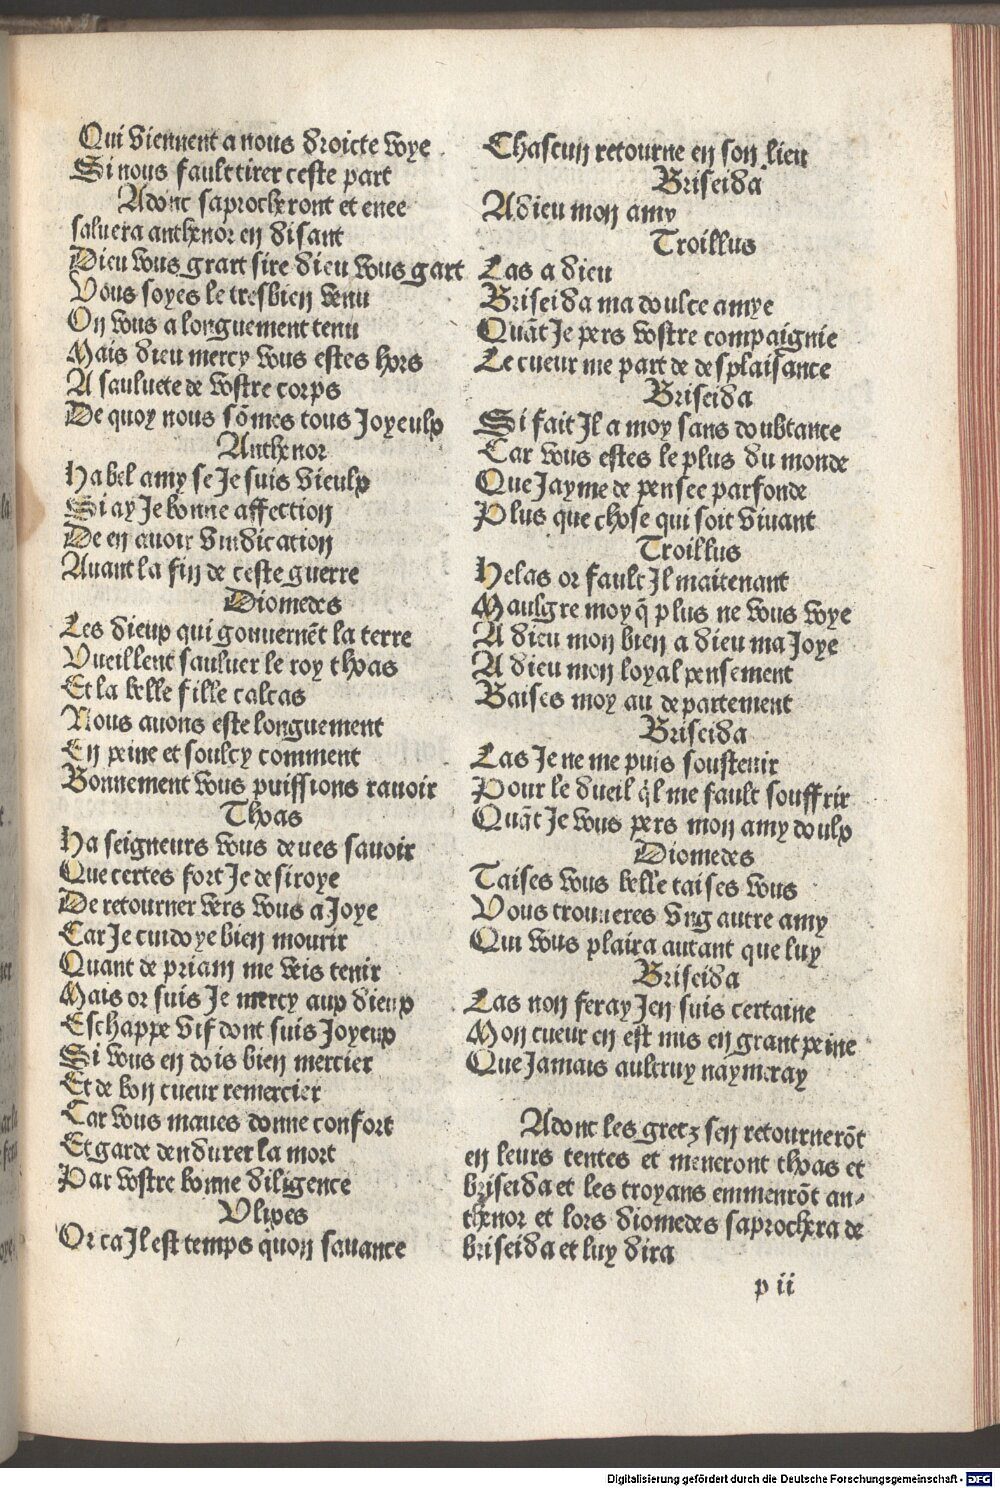 Qui viennent a nous droicte voye
Si nous fault tirer ceste part
Adonc saprocheront et enee
saluera anthenor en disant
Dieu vous grart sire dieu vous gart
Vous soyes le tresbien venu
On vous a longuement tenu
Mais dieu mercy vous estes hors
A sauluete de vostre corps
De quoy nous sõmes tous Joyeulx
Anthenor
Ha bel amy se Je suis vieulx
Si ay Je bonne affection
De en auoir vindication
Auant la fin de ceste guerre
Diomedes
Les dieux qui gouuernẽt la terre
Vueillent sauluer le roy thoas
Et la belle fille calcas
Nous auons este longuement
En peine et soulcy comment
Bonnement vous puissions rauoir
Thoas
Ha seigneurs vous deues sauoir
Que certes fort Je desiroye
De retourner vers vous a Joye
Car Je cuidoye bien mourir
Quant de priam me veis tenir
Mais or suis Je mercy aux dieux
Eschappe vif dont suis Joyeux
Si vous en dois bien mercier
Et de bon cueur remercier
Car vous maues donne confort
Et garde dendurer la mort
Par vostre bonne diligence
Vlixes
Or ca Jl est temps quon sauance
Chascun retourne en son lieu
Briseida
A dieu mon amy
Troillus
Las a dieu
Briseida ma doulce amye
Quãt Je pers vostre compaignie
Le cueur me part de desplaisance
Briseida
Si fait Jl a moy sans doubtance
Car vous estes le plus du monde
Que Jayme de pensee parfonde
Plus que chose qui soit viuant
Troillus
Helas or fault Jl maitenant
Maulgre moy q̃ plus ne vous voye
A dieu mon bien a dieu ma Joye
A dieu mon loyal pensement
Baises moy au departement
Briseida
Las Je ne me puis soustenir
Pour le dueil q̃l me fault souffrir
Quãt Je vous pers mon amy doulx
Diomedes
Taises vous belle taises vous
Vous trouueres vng autre amy
Qui vous plaira autant que luy
Briseida
Las non feray Jen suis certaine
Mon cueur en est mis en grant peine
Que Jamais aultruy naymeray
Adonc les gretz sen retournerõt
en leurs tentes et meneront thoas et
briseida et les troyans emmenrõt an-
thenor et lors diomedes saprochera de
briseida et luy dira
p ii
Digitalisierung gefördert durch die Deutsche Forschungsgemeinschaft - DFG